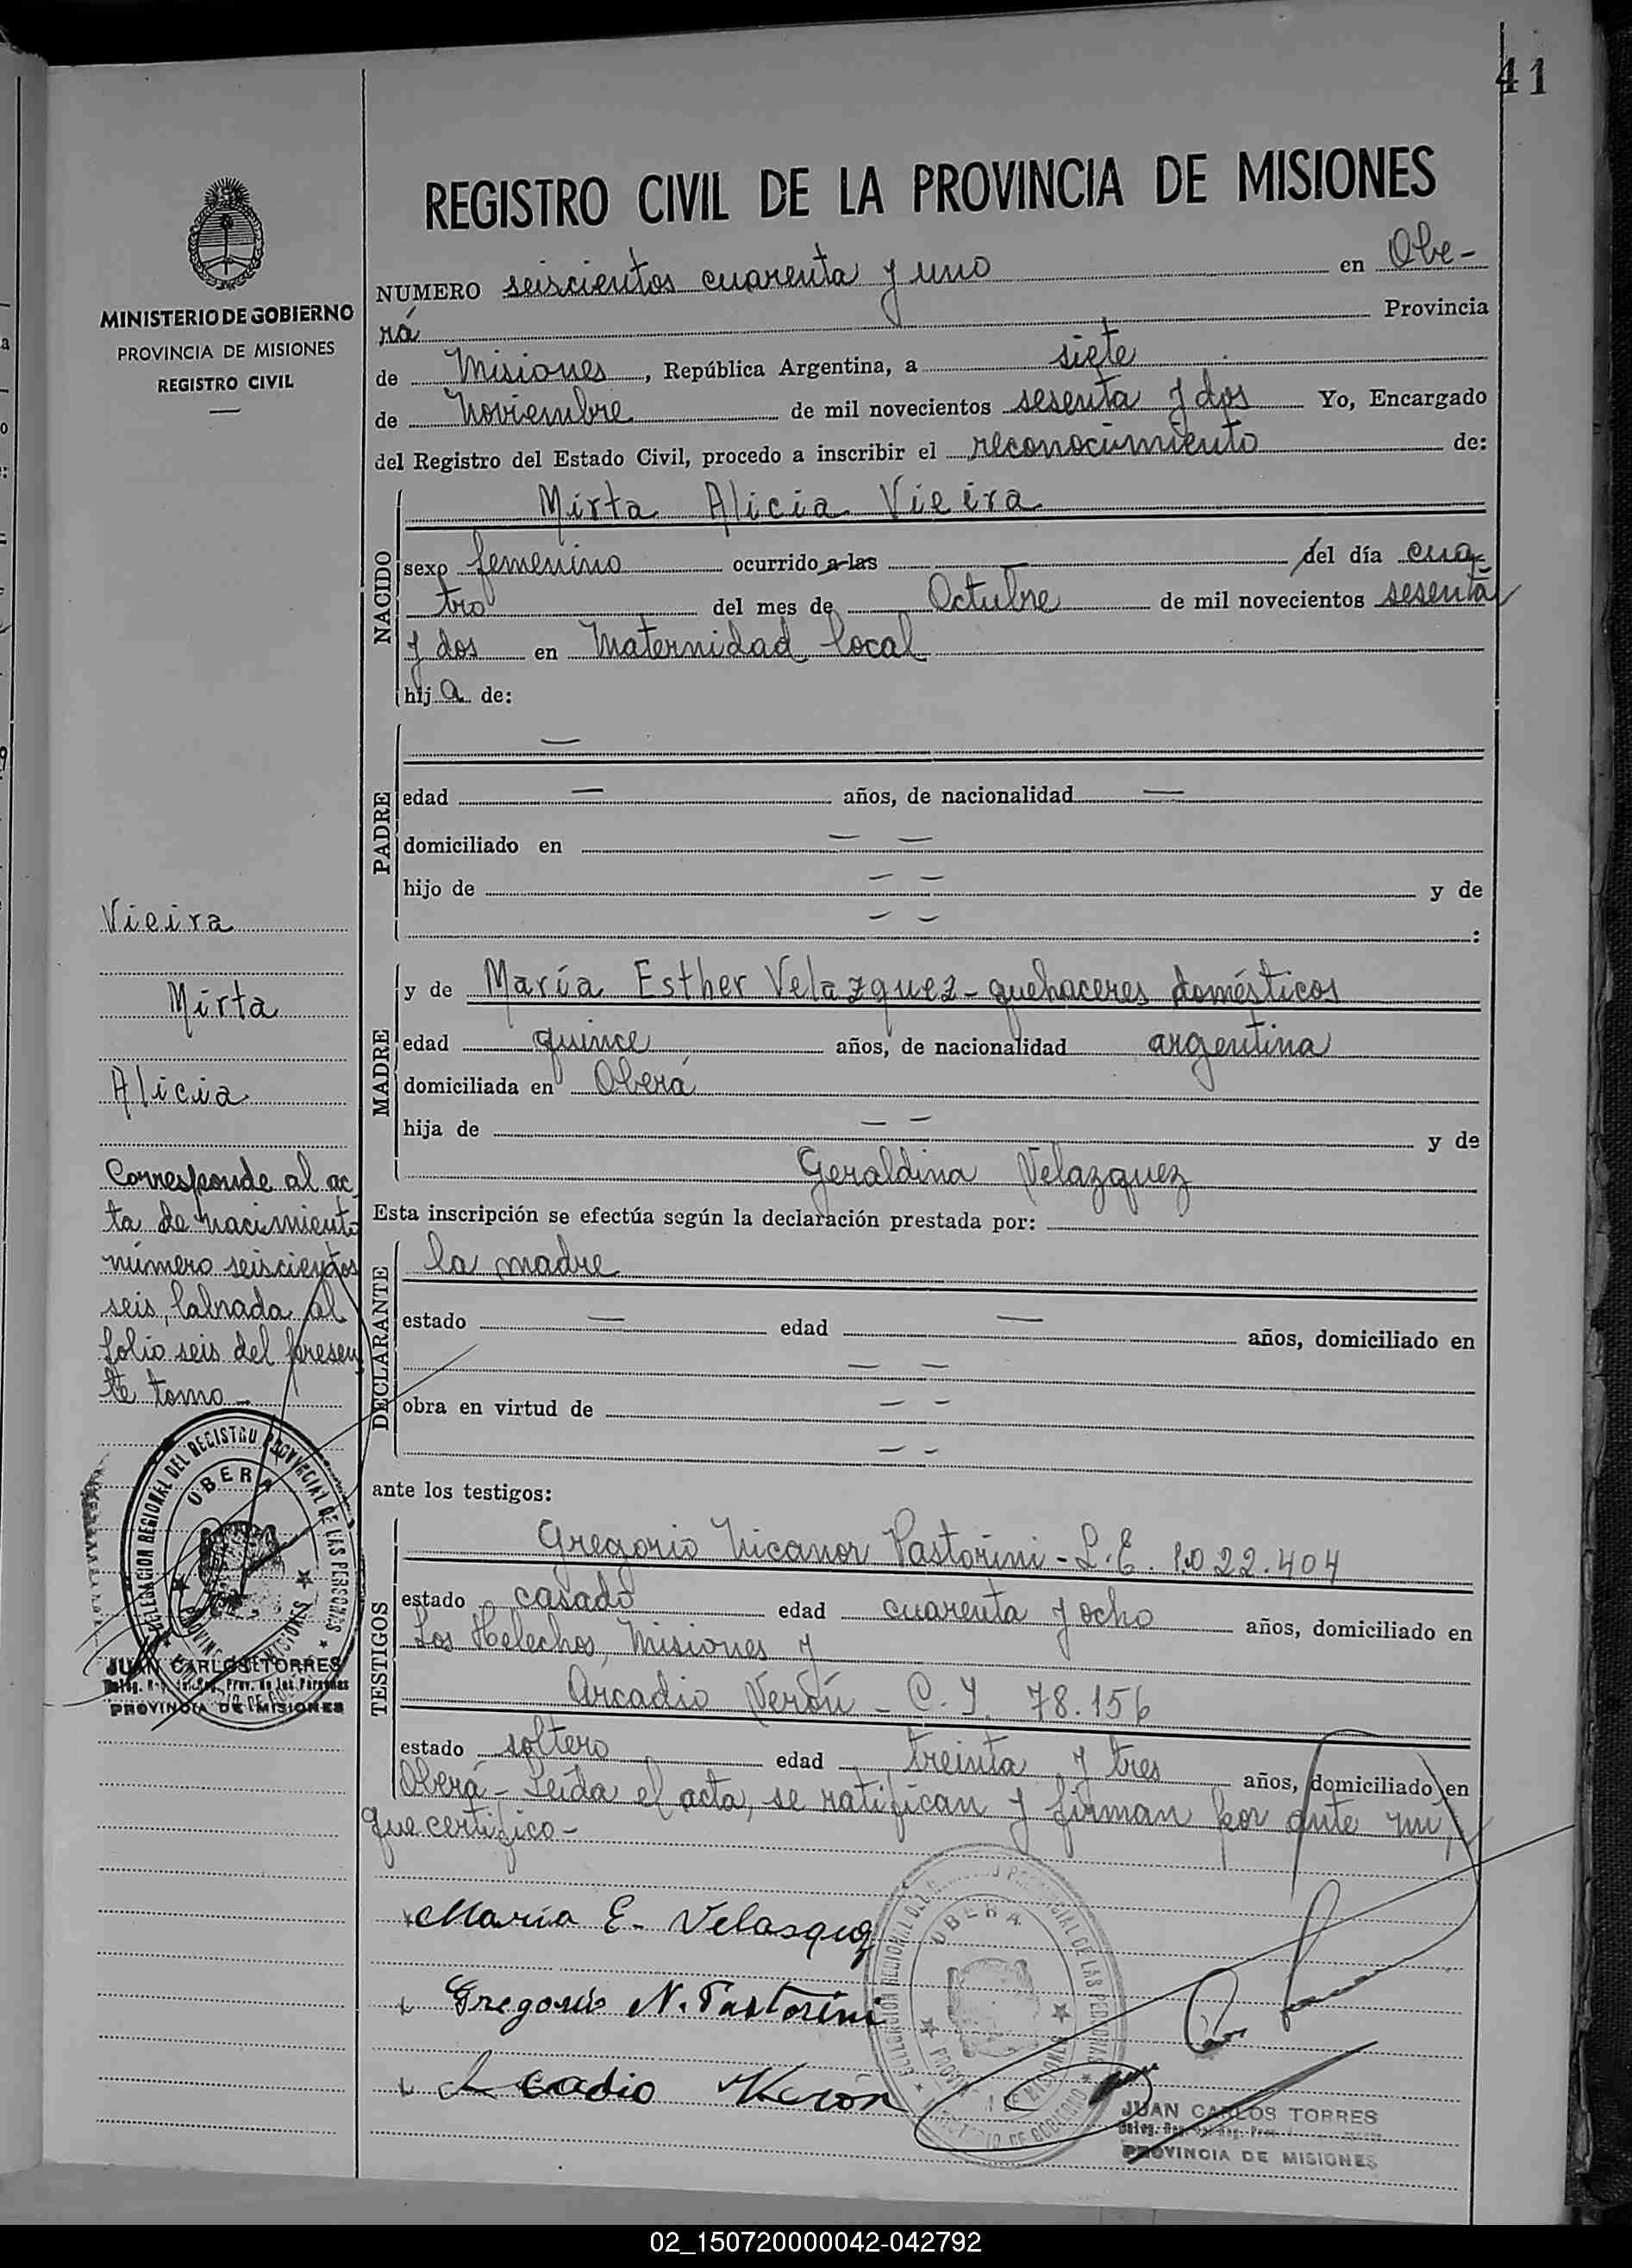 41
REGISTRO CIVIL DE LA PROVINCIA DE MISIONES
MINISTERIO DE GOBIERNO
PROVINCIA DE MISIONES
REGISTRO CIVIL
NUMERO seiscientos cuarenta y uno en Obe-
rá Provincia
de Misiones, República Argentina, a siete
de Noviembre de mil novecientos sesenta y dos Yo, Encargado
del Registro del Estado Civil, procedo a inscribir el reconocimiento de:
NACIDO
Mirta Alicia Vieira
sexo femenino ocurrido a las — del día cua-
tro del mes de Octubre de mil novecientos sesenta
y dos en Maternidad local
hija de:
PADRE
—
edad — años, de nacionalidad —
domiciliado en — —
hijo de — — y de
— — :
Vieira
Mirta
Alicia
MADRE
y de María Esther Velazquez - quehaceres domésticos
edad quince años, de nacionalidad argentina
domiciliada en Oberá
hija de — — y de
Geraldina Velazquez
Corresponde al ac
ta de nacimiento
número seiscientos
seis, labrada al
folio seis del presen
te tomo -
Esta inscripción se efectúa según la declaración prestada por:
DECLARANTE
la madre
estado — edad — años, domiciliado en
— —
obra en virtud de — —
— —
ante los testigos:
TESTIGOS
Gregorio Nicanor Pastorini - L.E. 1.022.404
estado casado edad cuarenta y ocho años, domiciliado en
Los Helechos, Misiones y
Arcadio Verón - C. I. 78.156
estado soltero edad treinta y tres años, domiciliado en
Oberá - Leída el acta, se ratifican y firman por ante mi,
que certifico -
DELEGACION REGIONAL DEL REGISTRO PROVINCIAL DE LAS PERSONAS
OBERA
JUAN CARLOS TORRES
Deleg. Reg. Prov. de las Personas
PROVINCIA DE MISIONES
María E. Velasquez
Gregorio N. Pastorini
Arcadio Verón
OBERA
JUAN CARLOS TORRES
PROVINCIA DE MISIONES
02_150720000042-042792